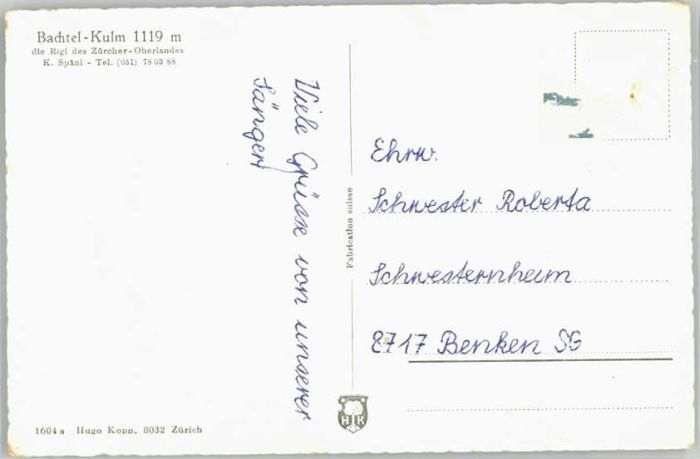 Bachtel-Kulm 1119 m
die Rigi des Zürcher-Oberlandes
K. Späni - Tel. (051) 78 03 88
Viele Grüsse von unserer
Fabrication suisse
Ehrw.
Schwester Roberta
Schwesternheim
8717 Benken SG
HK
1604 a Hugo Kopp, 8032 Zürich